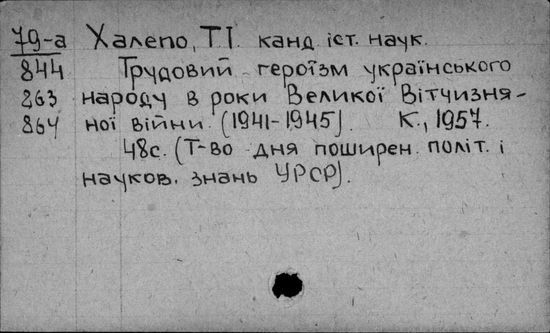 79-а Халепо, Т.І. канд. іст. наук.
844 Трудовий героїзм українського
263 народу в роки Великої Вітчизня-
864 ної війни. (1941-1945). К., 1957.
48с. (Т-во дня поширен. політ. і
науков. знань УРСР).